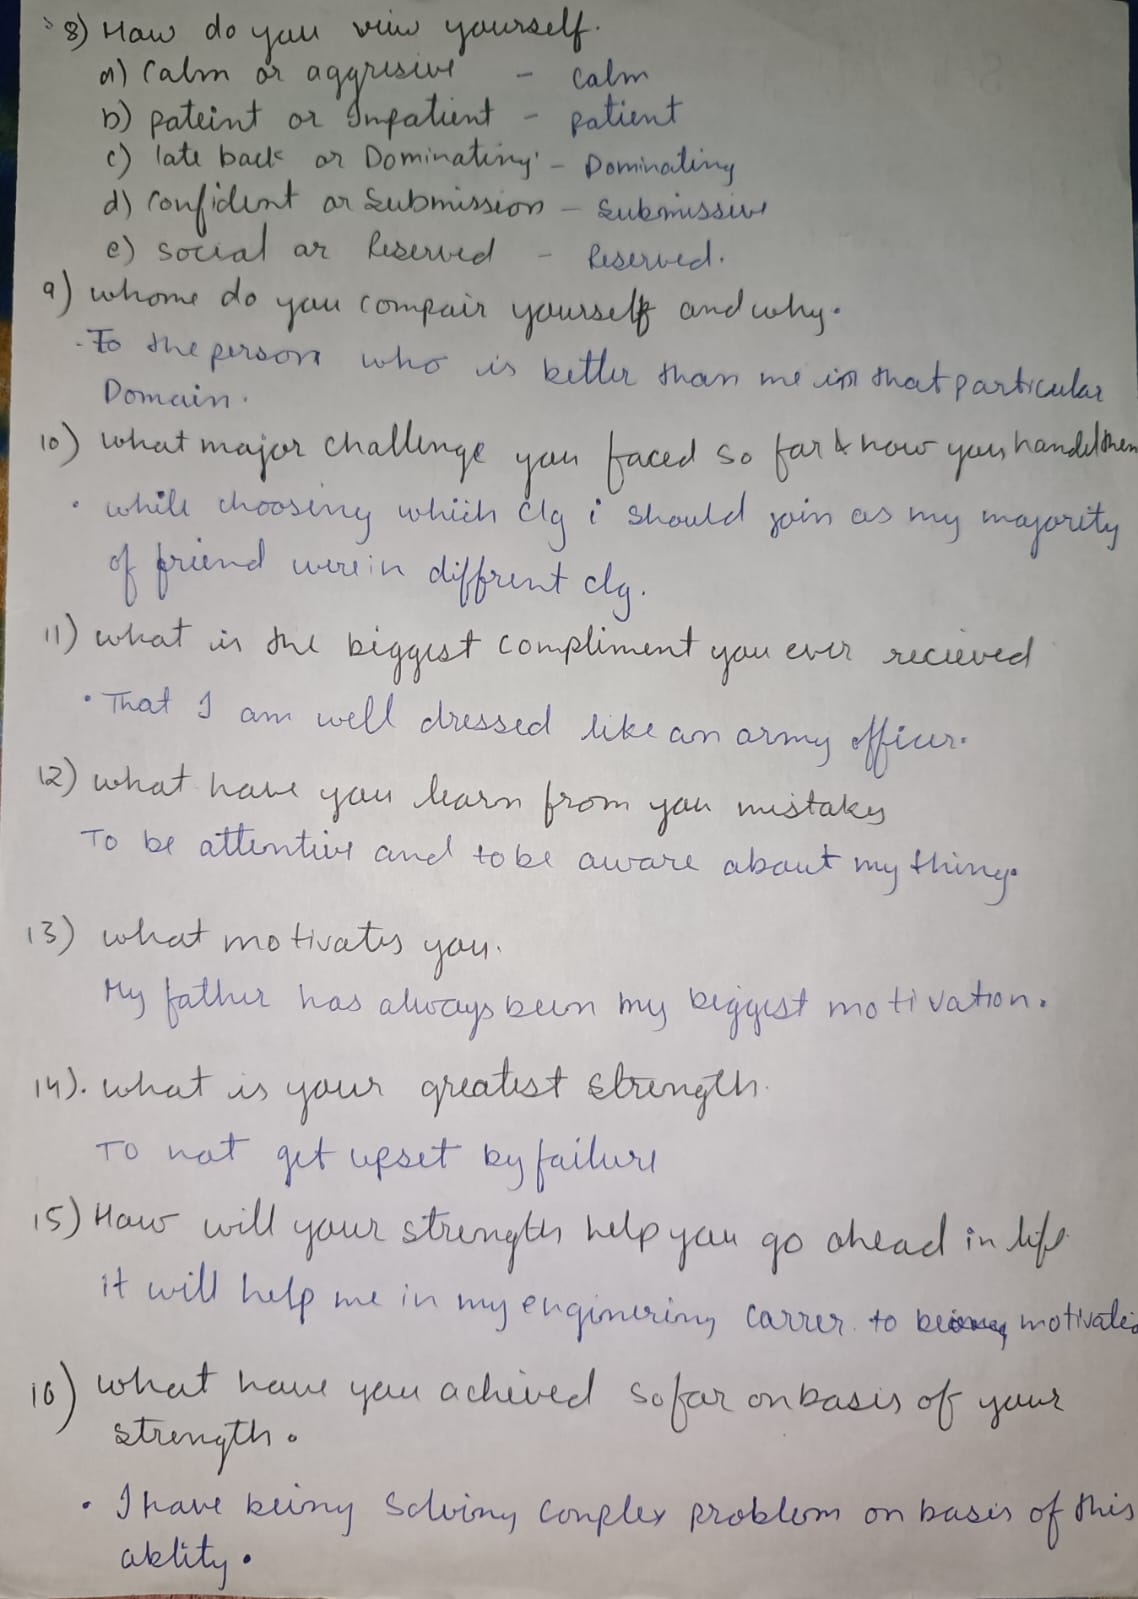 8) How do you view yourself.
a) Calm or aggresive - Calm
b) pateint or Impatient - patient
c) late back or Dominating - Dominating
d) Confident or Submission - Submissive
e) social or Reserved - Reserved.
9) whome do you compair yourself and why.
- To the person who is better than me in that particular
Domain.
10) what major challenge you faced so far & how you handel them
• while choosing which clg i should join as my majority
of friend were in diffrent clg.
11) what is the biggest compliment you ever recieved
• That I am well dressed like an army officer.
12) what have you learn from you mistakes
To be attentive and to be aware about my things.
13) what motivates you.
My father has always been my biggest motivation.
14). what is your greatest strength.
To not get upset by failure
15) How will your strength help you go ahead in life
it will help me in my enginering carrer to being motivated
16) what have you achived so far on basis of your
strength.
• I have being solving conplex problem on basis of this
ablity.